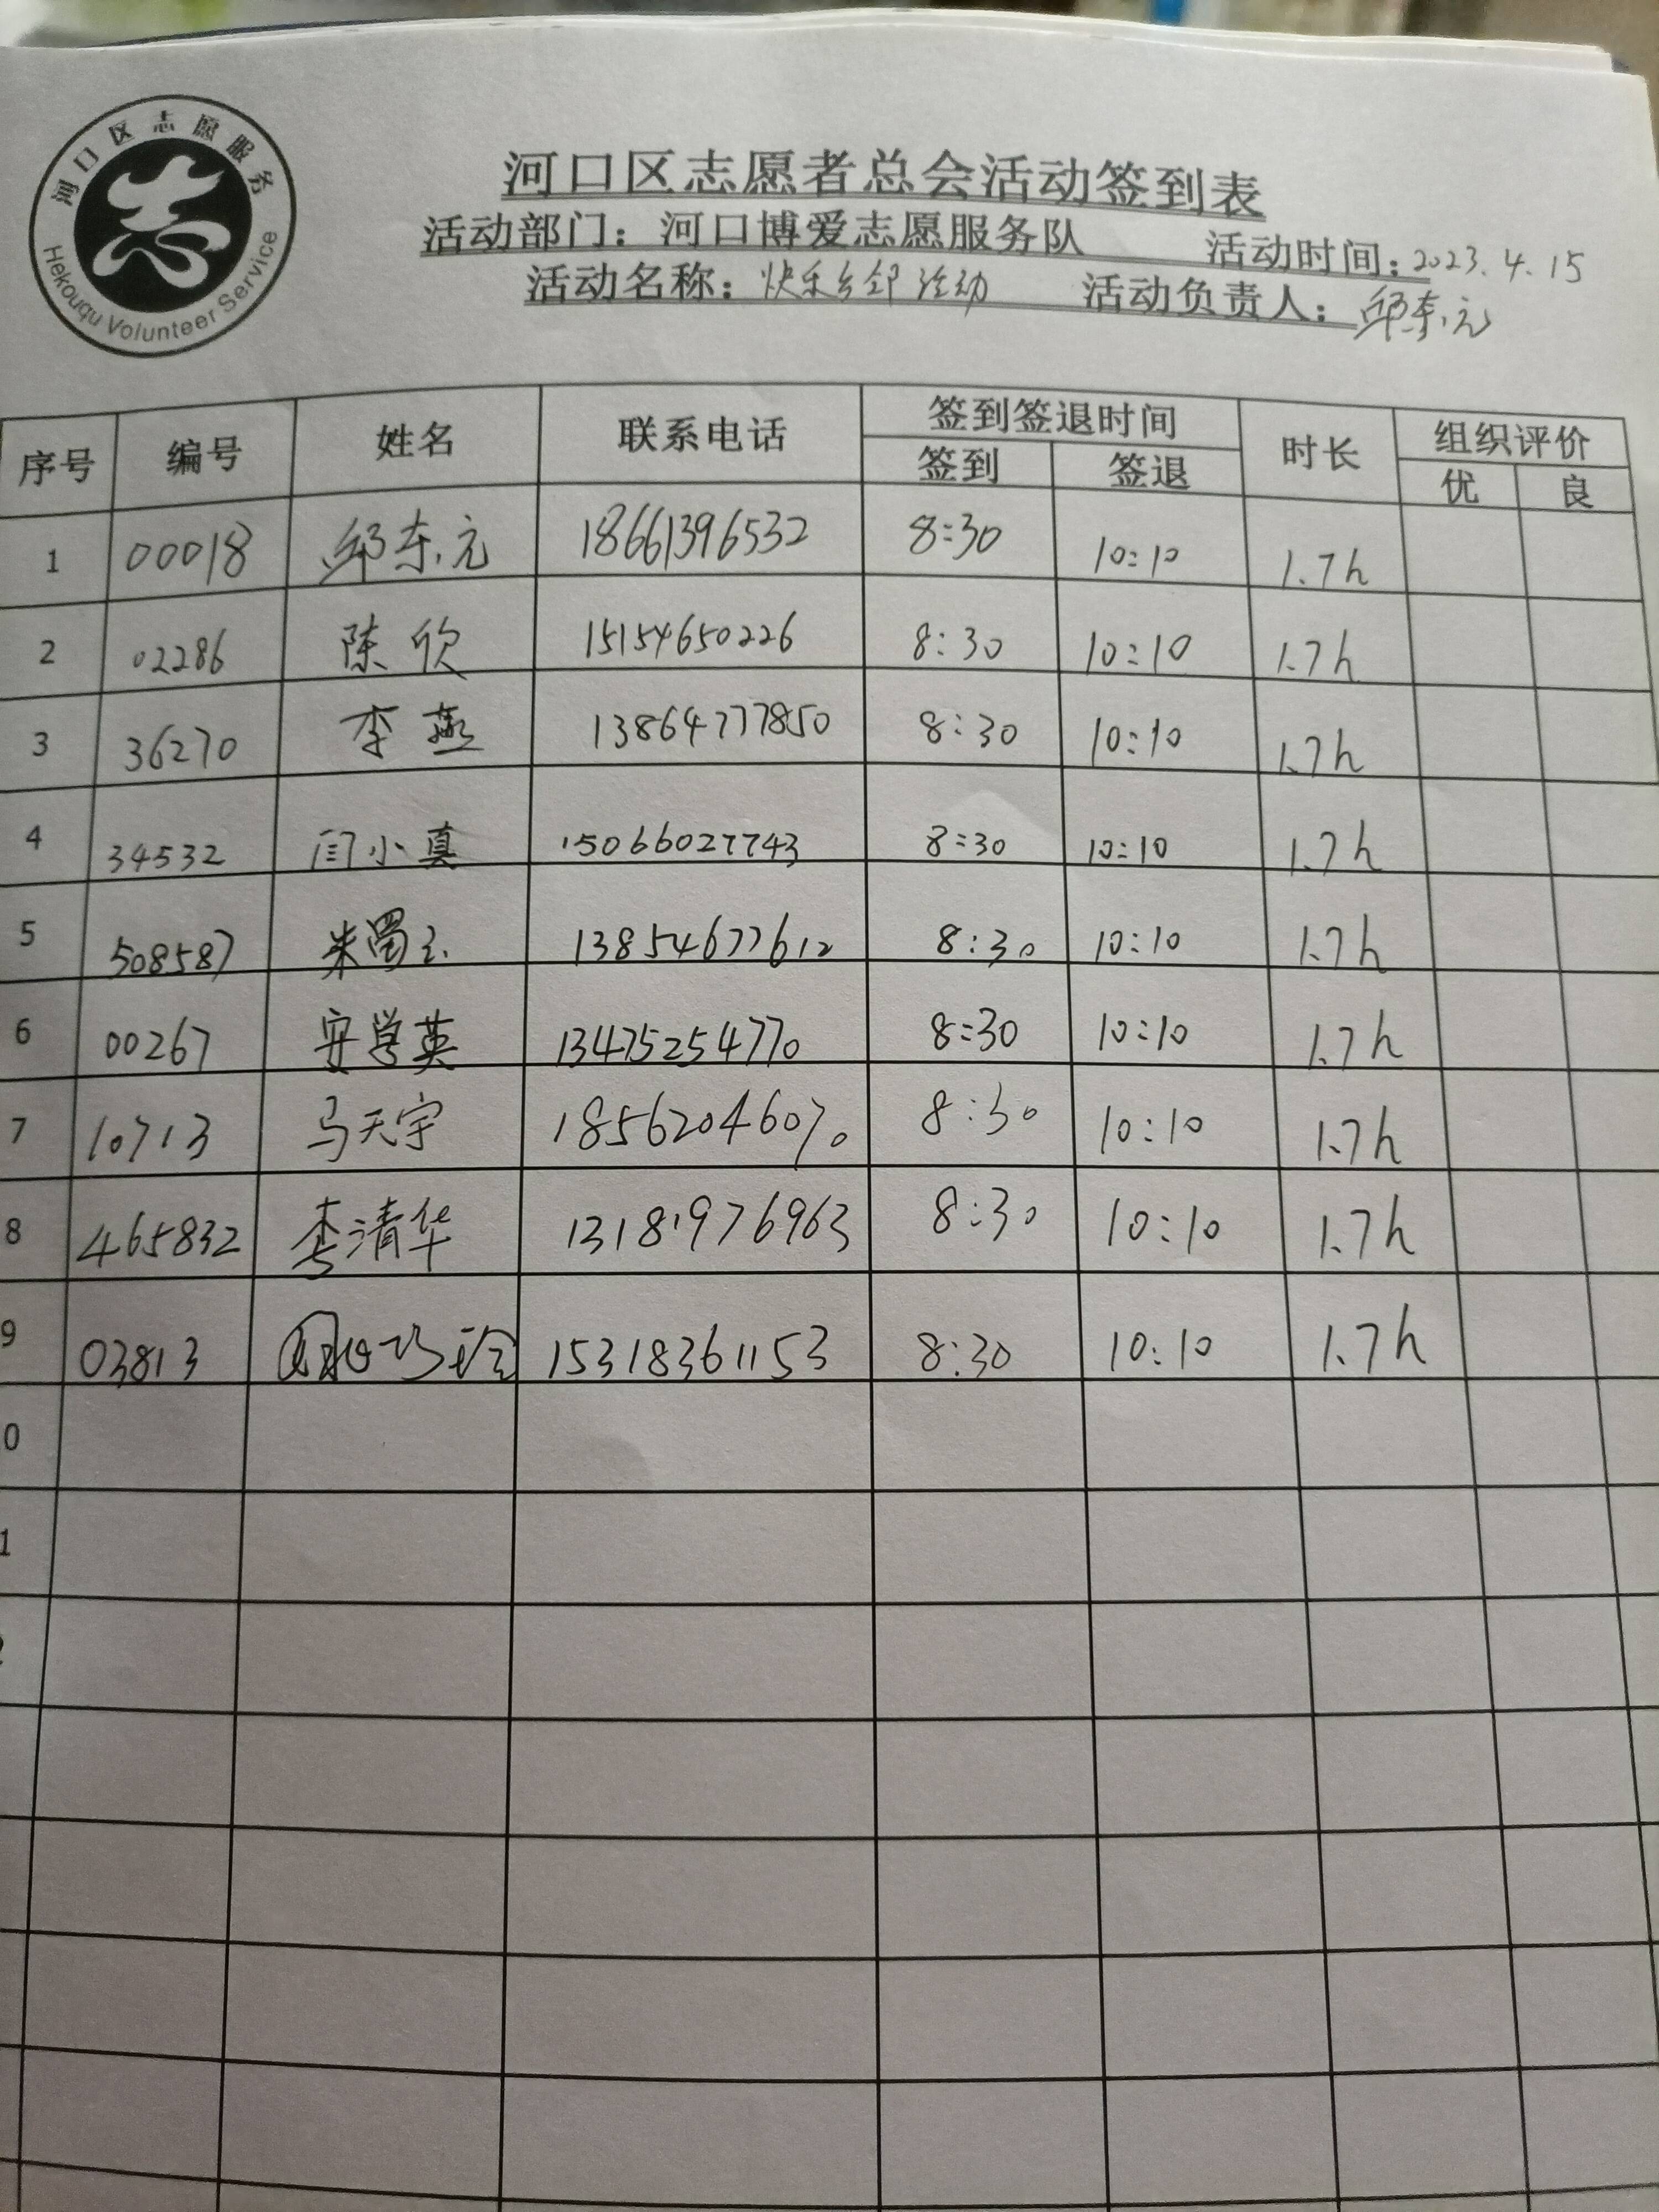 河口区志愿服务
Hekouqu Volunteer Service
河口区志愿者总会活动签到表
活动部门：河口博爱志愿服务队 活动时间：2023.4.15
活动名称：快乐乡邻活动 活动负责人：邱东元
序号 编号 姓名 联系电话 签到签退时间 时长 组织评价
签到 签退 优 良
1 00018 邱东元 18661396532 8:30 10:10 1.7h
2 02286 陈欣 15154650226 8:30 10:10 1.7h
3 36270 李燕 13864777850 8:30 10:10 1.7h
4 34532 闫小真 15066027743 8:30 10:10 1.7h
5 508587 13854677612 8:30 10:10 1.7h
6 00267 安学英 13475254770 8:30 10:10 1.7h
7 10713 马天宇 18562046070 8:30 10:10 1.7h
8 465832 李清华 13181976963 8:30 10:10 1.7h
9 03813 15318361153 8:30 10:10 1.7h
0
1